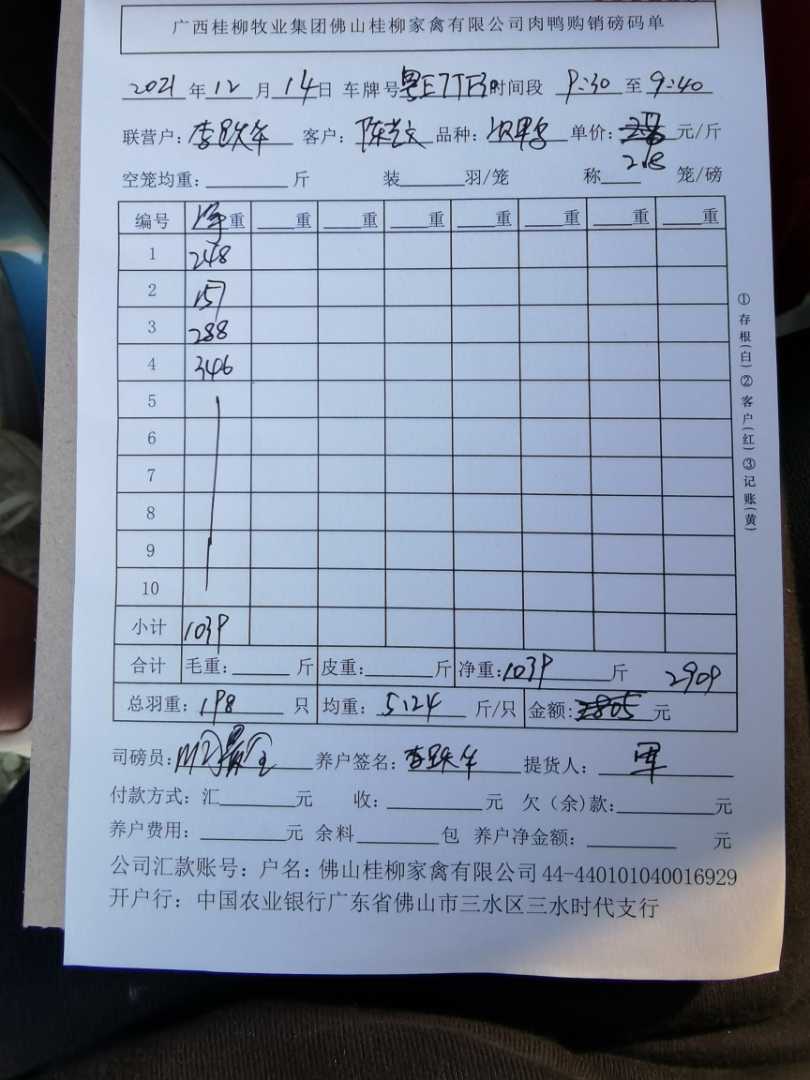 广西桂柳牧业集团佛山桂柳家禽有限公司肉鸭购销磅码单
2021年12月14日 车牌号粤E7TF3时间段 9:30至9:40
联营户: 客户: 品种: 单价: 元/斤
2.8
空笼均重: 斤 装 羽/笼 称 笼/磅
编号 净重 重 重 重 重 重 重 重
1 248
2 157
3 288
4 346
5
6
7
8
9
10
小计 1039
合计 毛重: 斤 皮重: 斤 净重:1039斤 2909
总羽重:198只 均重:5.24斤/只 金额:2805元
司磅员: 养户签名: 提货人:军
付款方式:汇 元 收: 元 欠(余)款: 元
养户费用: 元 余料 包 养户净金额: 元
公司汇款账号:户名:佛山桂柳家禽有限公司 44-440101040016929
开户行:中国农业银行广东省佛山市三水区三水时代支行
①存根(白)②客户(红)③记账(黄)